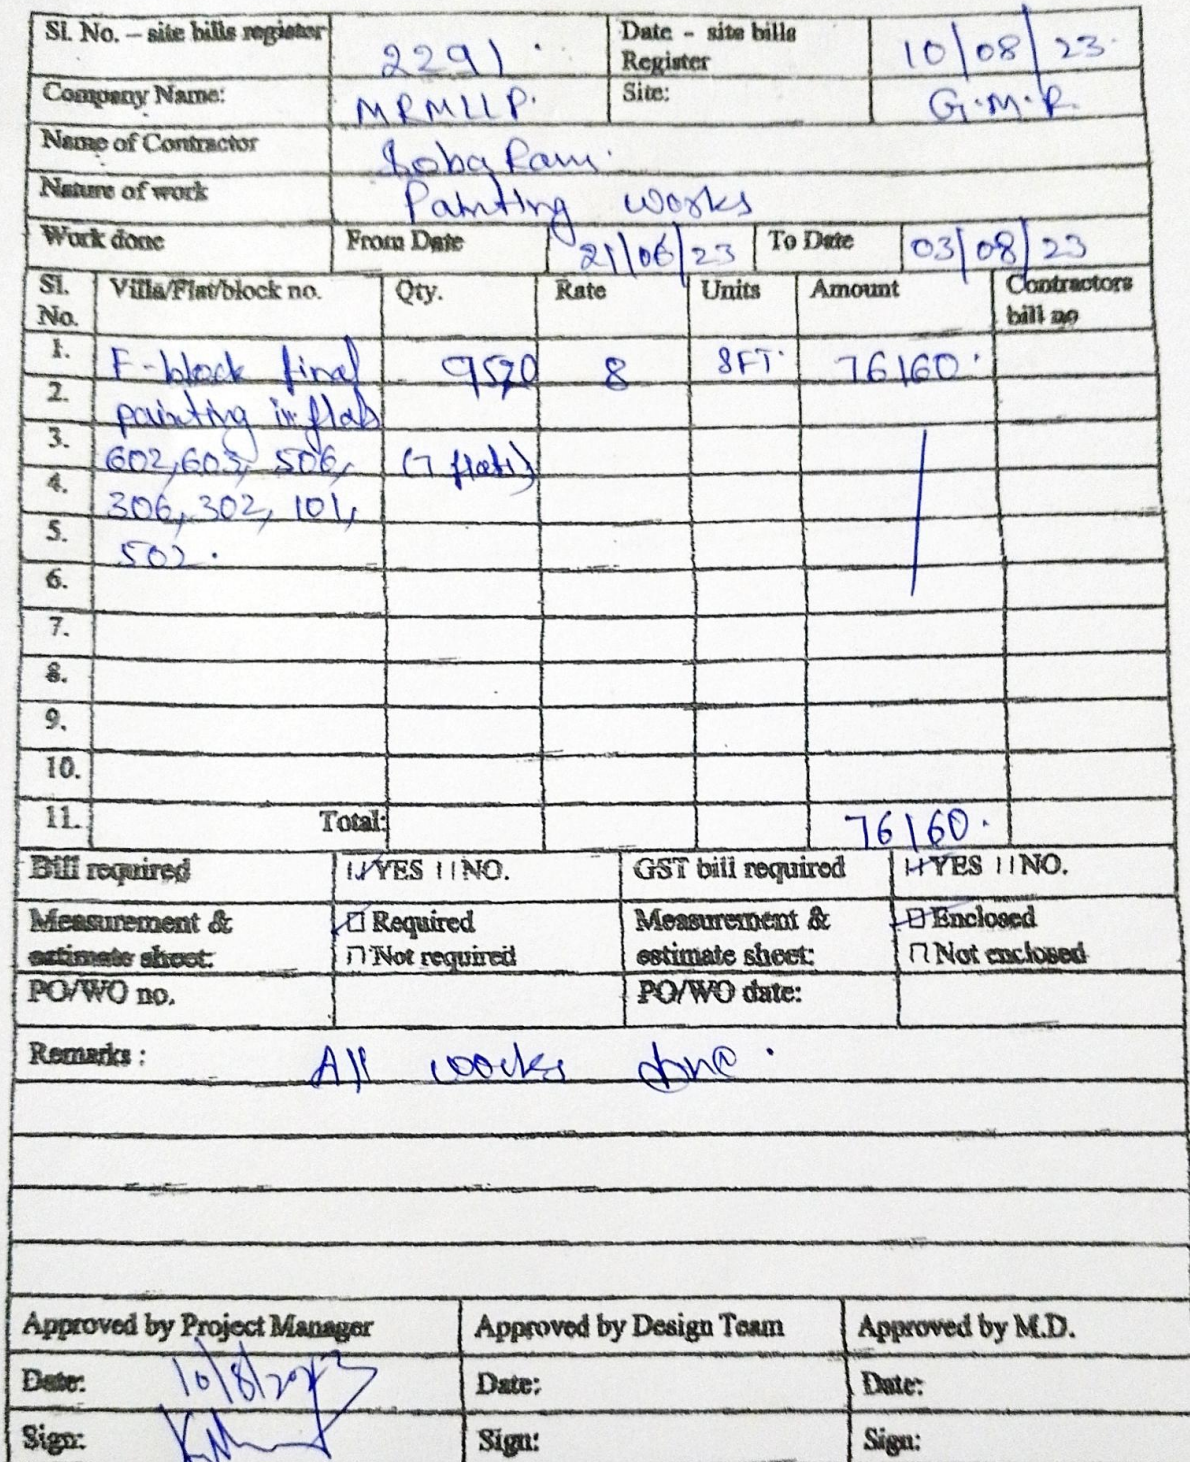 Sl. No. – site bills register 2291 Date - site bills Register 10/08/23
Company Name: MRMLLP. Site: G.M.R.
Name of Contractor SobaRam.
Nature of work Painting works
Work done From Date 21/06/23 To Date 03/08/23
Sl. No. Villa/Flat/block no. Qty. Rate Units Amount Contractors bill no
1. F-block final 9520 8 SFT. 76160.
2. painting in flats
3. 602, 603, 506, (7 flats)
4. 306, 302, 101,
5. 502.
6.
7.
8.
9.
10.
11. Total: 76160.
Bill required YES NO. GST bill required YES NO.
Measurement & estimate sheet: Required Measurement & estimate sheet: Enclosed
Not required Not enclosed
PO/WO no. PO/WO date:
Remarks : All works done.
Approved by Project Manager Approved by Design Team Approved by M.D.
Date: 10/8/2023 Date: Date:
Sign: Sign: Sign: